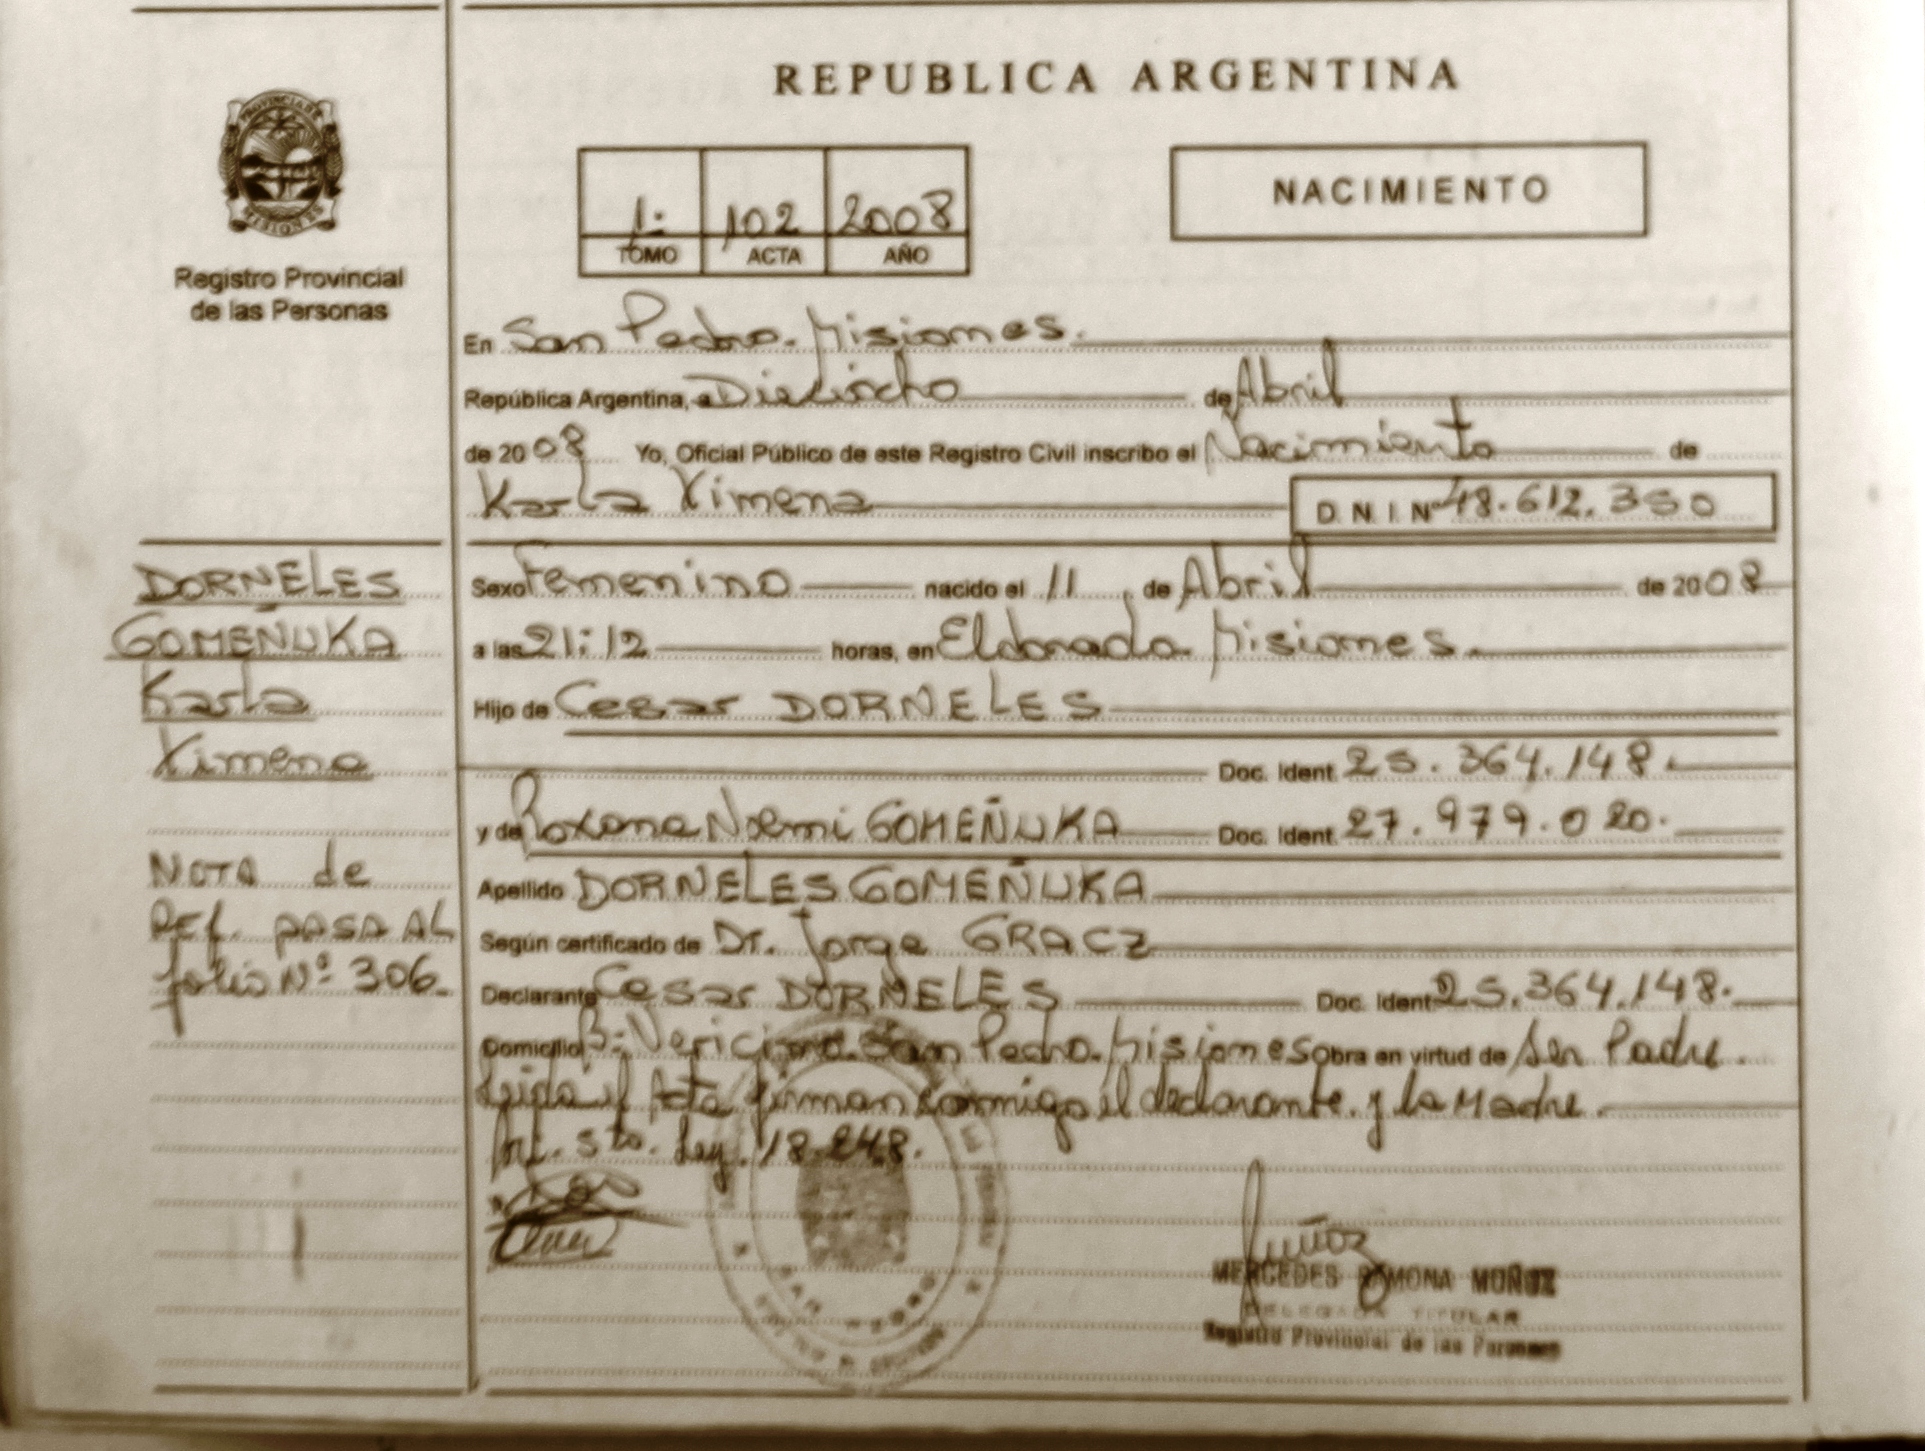 REPUBLICA ARGENTINA
PROVINCIA DE
MISIONES
Registro Provincial
de las Personas
1: 102 2008
TOMO ACTA AÑO
NACIMIENTO
En San Pedro. Misiones.
República Argentina, a Dieciocho de Abril
de 2008 Yo, Oficial Público de este Registro Civil inscribo el Nacimiento de
Karla Ximena D. N. I. Nº 48.612.350
DORNELES
GOMEÑUKA
Karla
Ximena
NOTA de
Ref. PASA AL
folio Nº 306.
Sexo Femenino nacido el 11 de Abril de 2008
a las 21:12 horas, en Eldorado Misiones.
Hijo de Cesar DORNELES
Doc. Ident. 25.364.148.
y de Roxana Noemi GOMEÑUKA Doc. Ident. 27.979.020.
Apellido DORNELES GOMEÑUKA
Según certificado de Dr. Jorge GRACZ
Declarante Cesar DORNELES Doc. Ident. 25.364.148.
Domicilio Bº San Pedro. Misiones Obra en virtud de Ser Padre.
Leida el Acta firman conmigo el declarante. y la Madre.
Art. 5to. Ley. 18.248.
SAN PEDRO
Muñoz
MERCEDES RAMONA MUÑOZ
DELEGADA TITULAR
Registro Provincial de las Personas